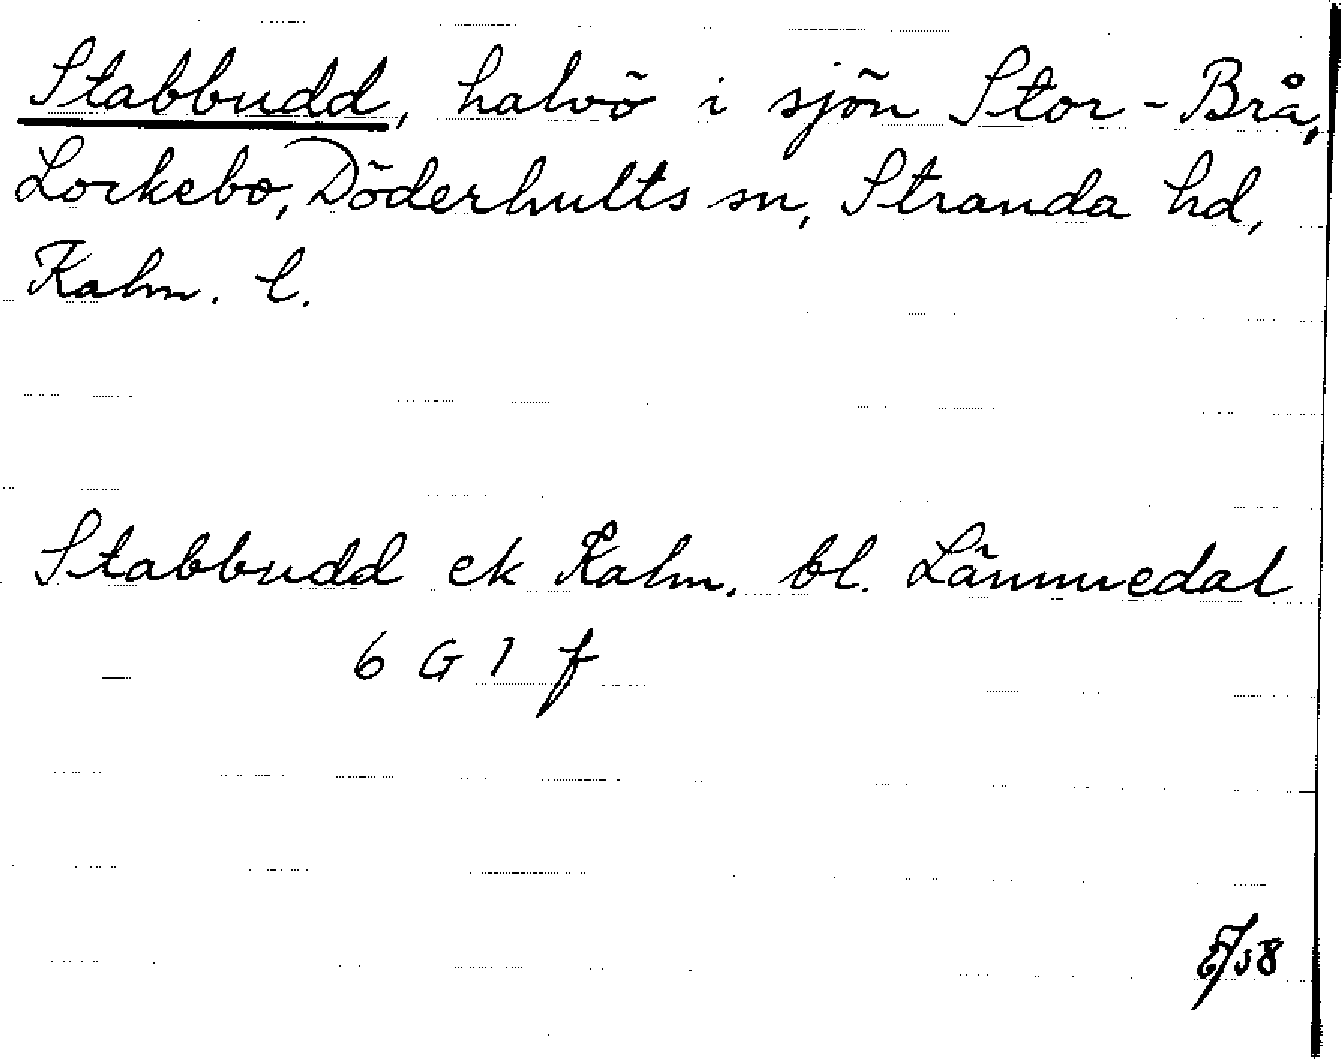 Stabbudd, halvö i sjön Stor-Brå,
Lockebo, Döderhults sn, Stranda hd,
Kalm. l.
Stabbudd ek Kalm. bl. Länmedal
6 G 1 f